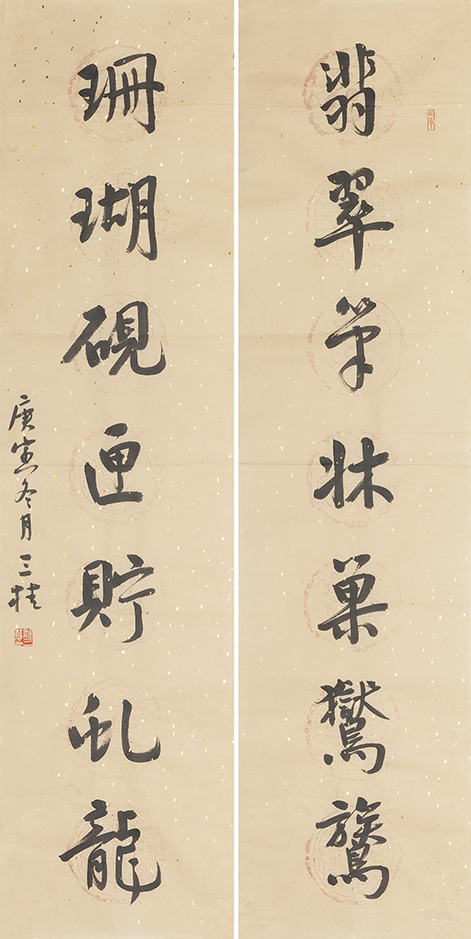 翡翠笔牀巢鸑鷟
珊瑚砚匣贮虬龍
庚寅冬月三桂